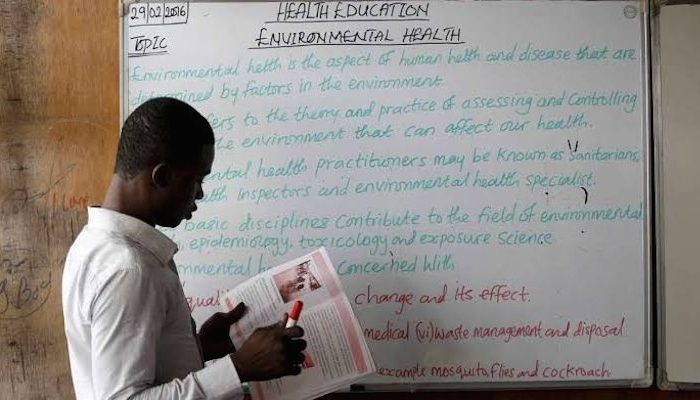 29/02/2016
HEALTH EDUCATION
TOPIC
ENVIRONMENTAL HEALTH
Environmental helth is the aspect of human helth and disease that are
determined by factors in the environment.
to the theory and practice of assessing and Controlling
the environment that can affect our health.
health practitioners may be known as Sanitarians,
Inspectors and environmental health specialist.
basic disciplines Contribute to the field of environmental
epidemiology, toxicology and exposure science
Concerned With
change and its effect.
medical (vi) waste management and disposal
example mosquito, flies and cockroach